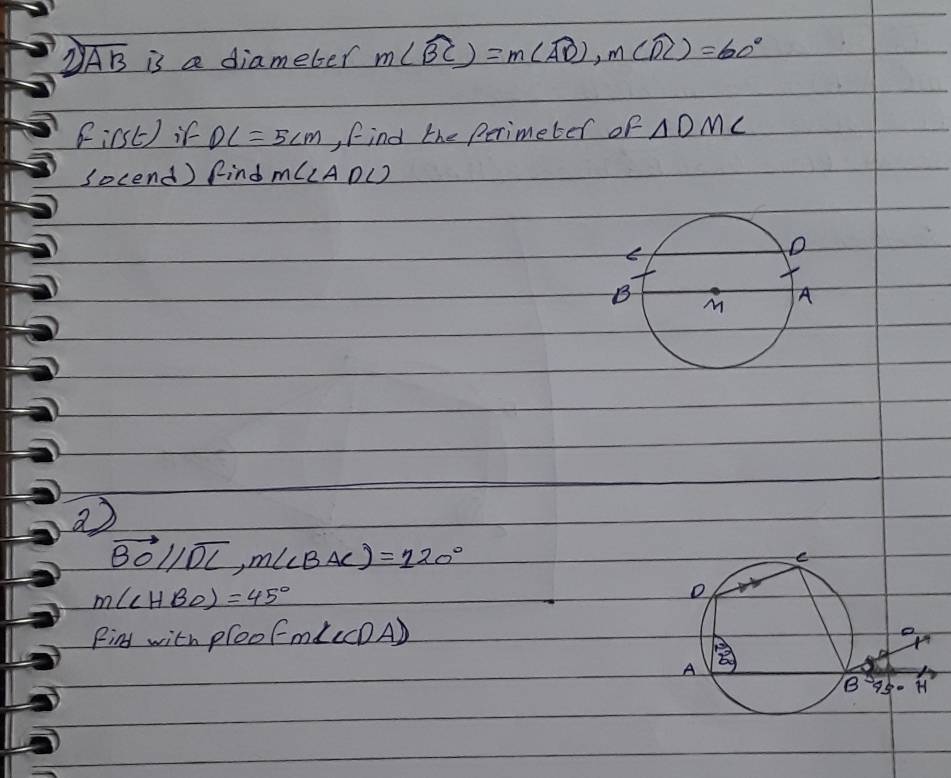 1) AB is a diameter m(BC) = m(AD), m(DC) = 60°
first) if DC = 5cm, find the Perimeter of ΔDMC
socend) find m(∠ADC)
C D
B M A
2)
BO // DC, m(∠BAC) = 120°
m(∠HBO) = 45°
find with proof m(∠CDA)
C
D
120
O
A B 45° H